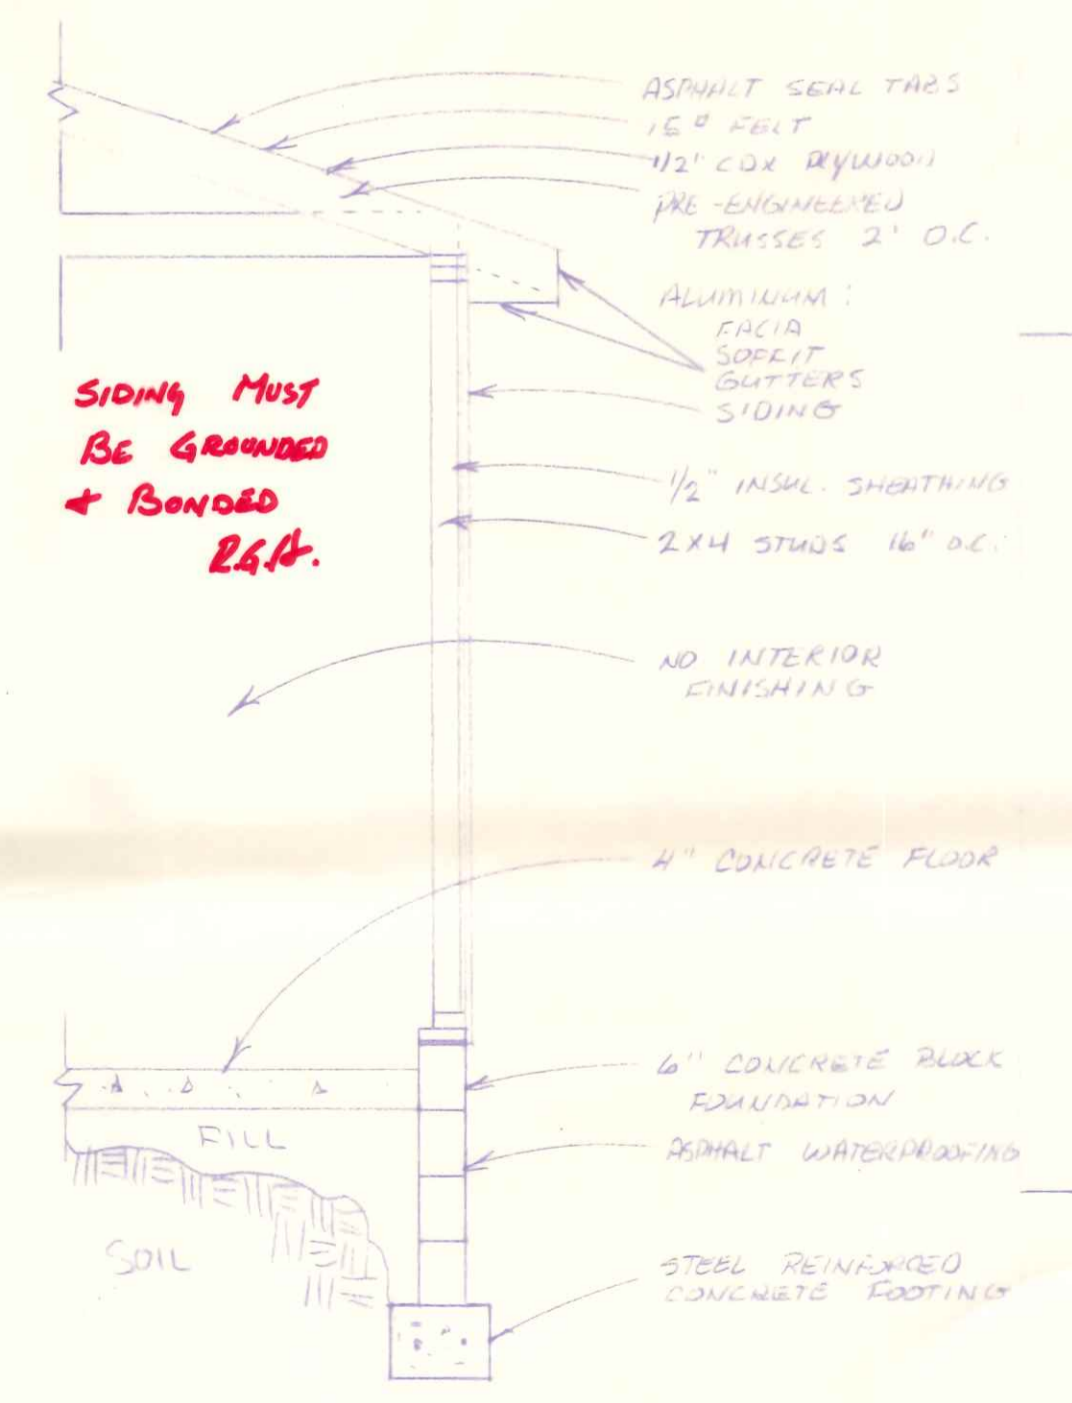 ASPHALT SEAL TABS
15# FELT
1/2" CDX PLYWOOD
PRE-ENGINEERED
TRUSSES 2' O.C.
ALUMINUM:
FACIA
SOFFIT
GUTTERS
SIDING
SIDING MUST
BE GROUNDED
+ BONDED
R.G.A.
1/2" INSUL. SHEATHING
2X4 STUDS 16" O.C.
NO INTERIOR
FINISHING
4" CONCRETE FLOOR
6" CONCRETE BLOCK
FOUNDATION
FILL
ASPHALT WATERPROOFING
SOIL
STEEL REINFORCED
CONCRETE FOOTING